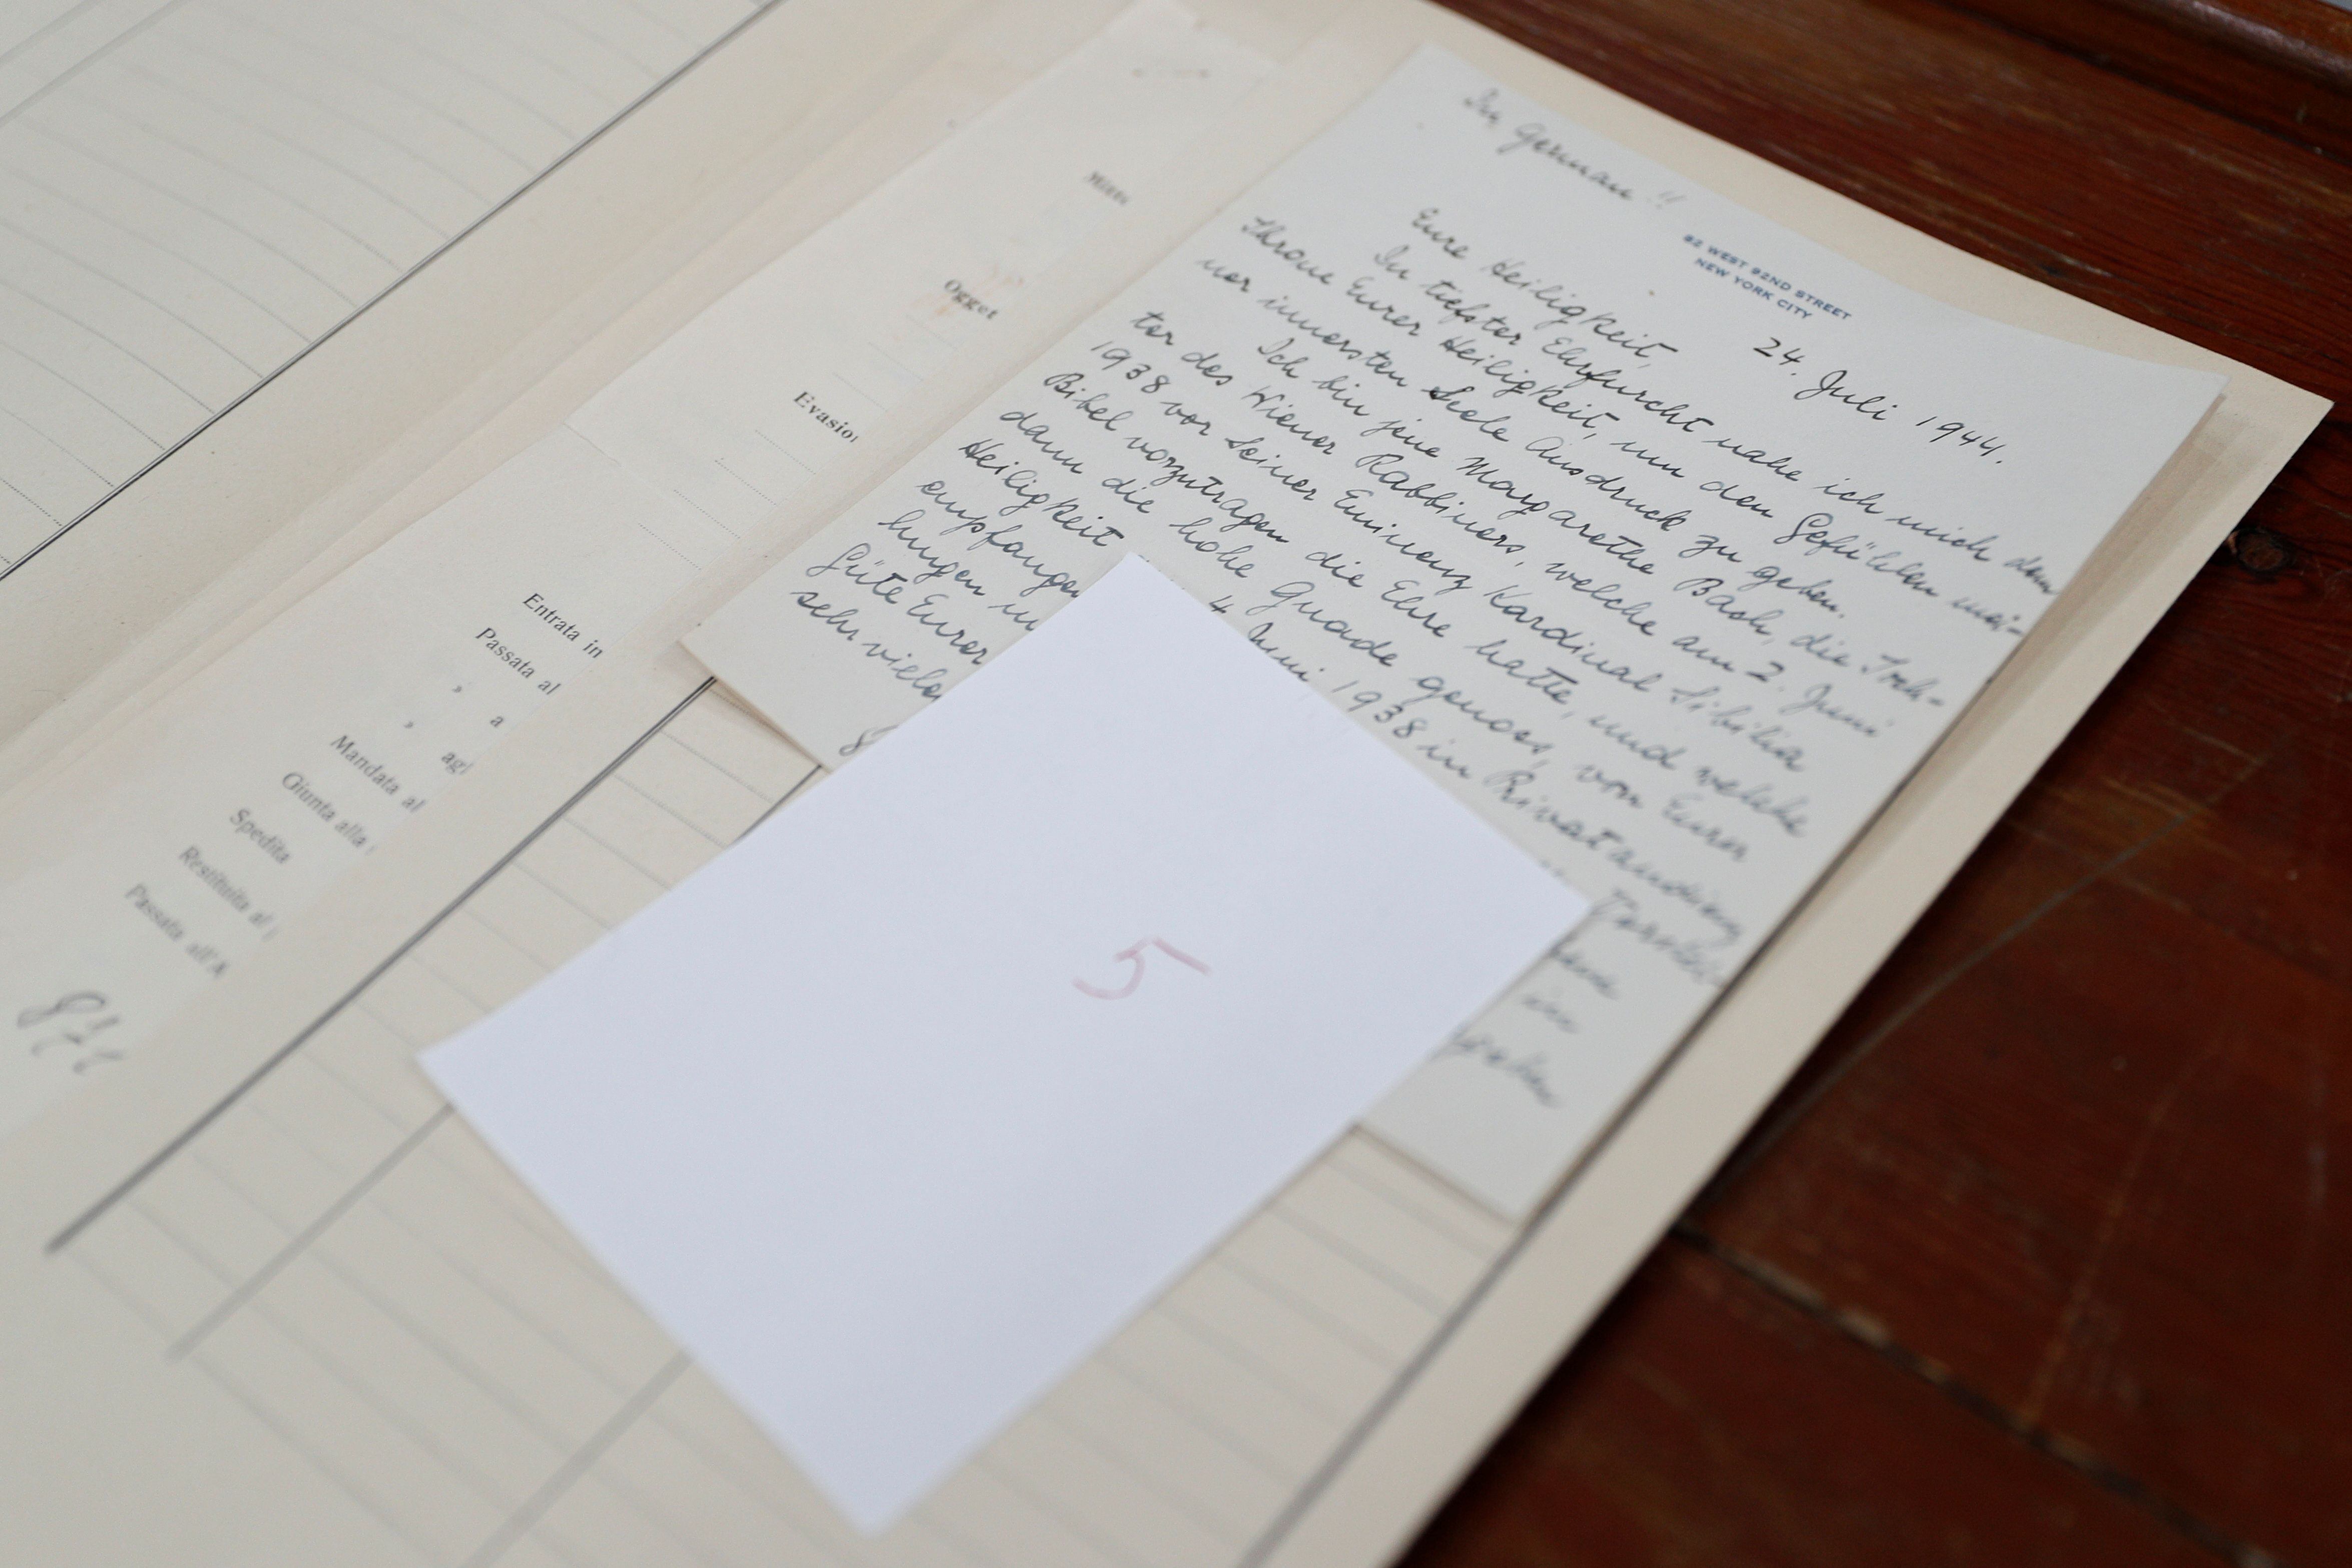 In German !!
92 WEST 92ND STREET
NEW YORK CITY
24. Juli 1944.
Eure Heiligkeit,
In tiefster Ehrfurcht nahe ich mich dem
Throne Eurer Heiligkeit, um den Gefühlen mei-
ner innersten Seele Ausdruck zu geben.
Ich bin jene Margarethe Bach, die Toch-
ter des Wiener Rabbiners, welche am 2. Juni
1938 vor Seiner Eminenz Kardinal Sibilia
Bibel vorzutragen die Ehre hatte, und welche
dann die hohe Gnade genoss, von Eurer
Heiligkeit 4. Juni 1938 in Privataudienz
empfangen
hungen
Güte Eurer
sehr viele
5
Ogget
Evasio
Entrata in
Passata al
» a
» agl
Mandata al
Giunta alla
Spedita
Restituita al
Passata all'A